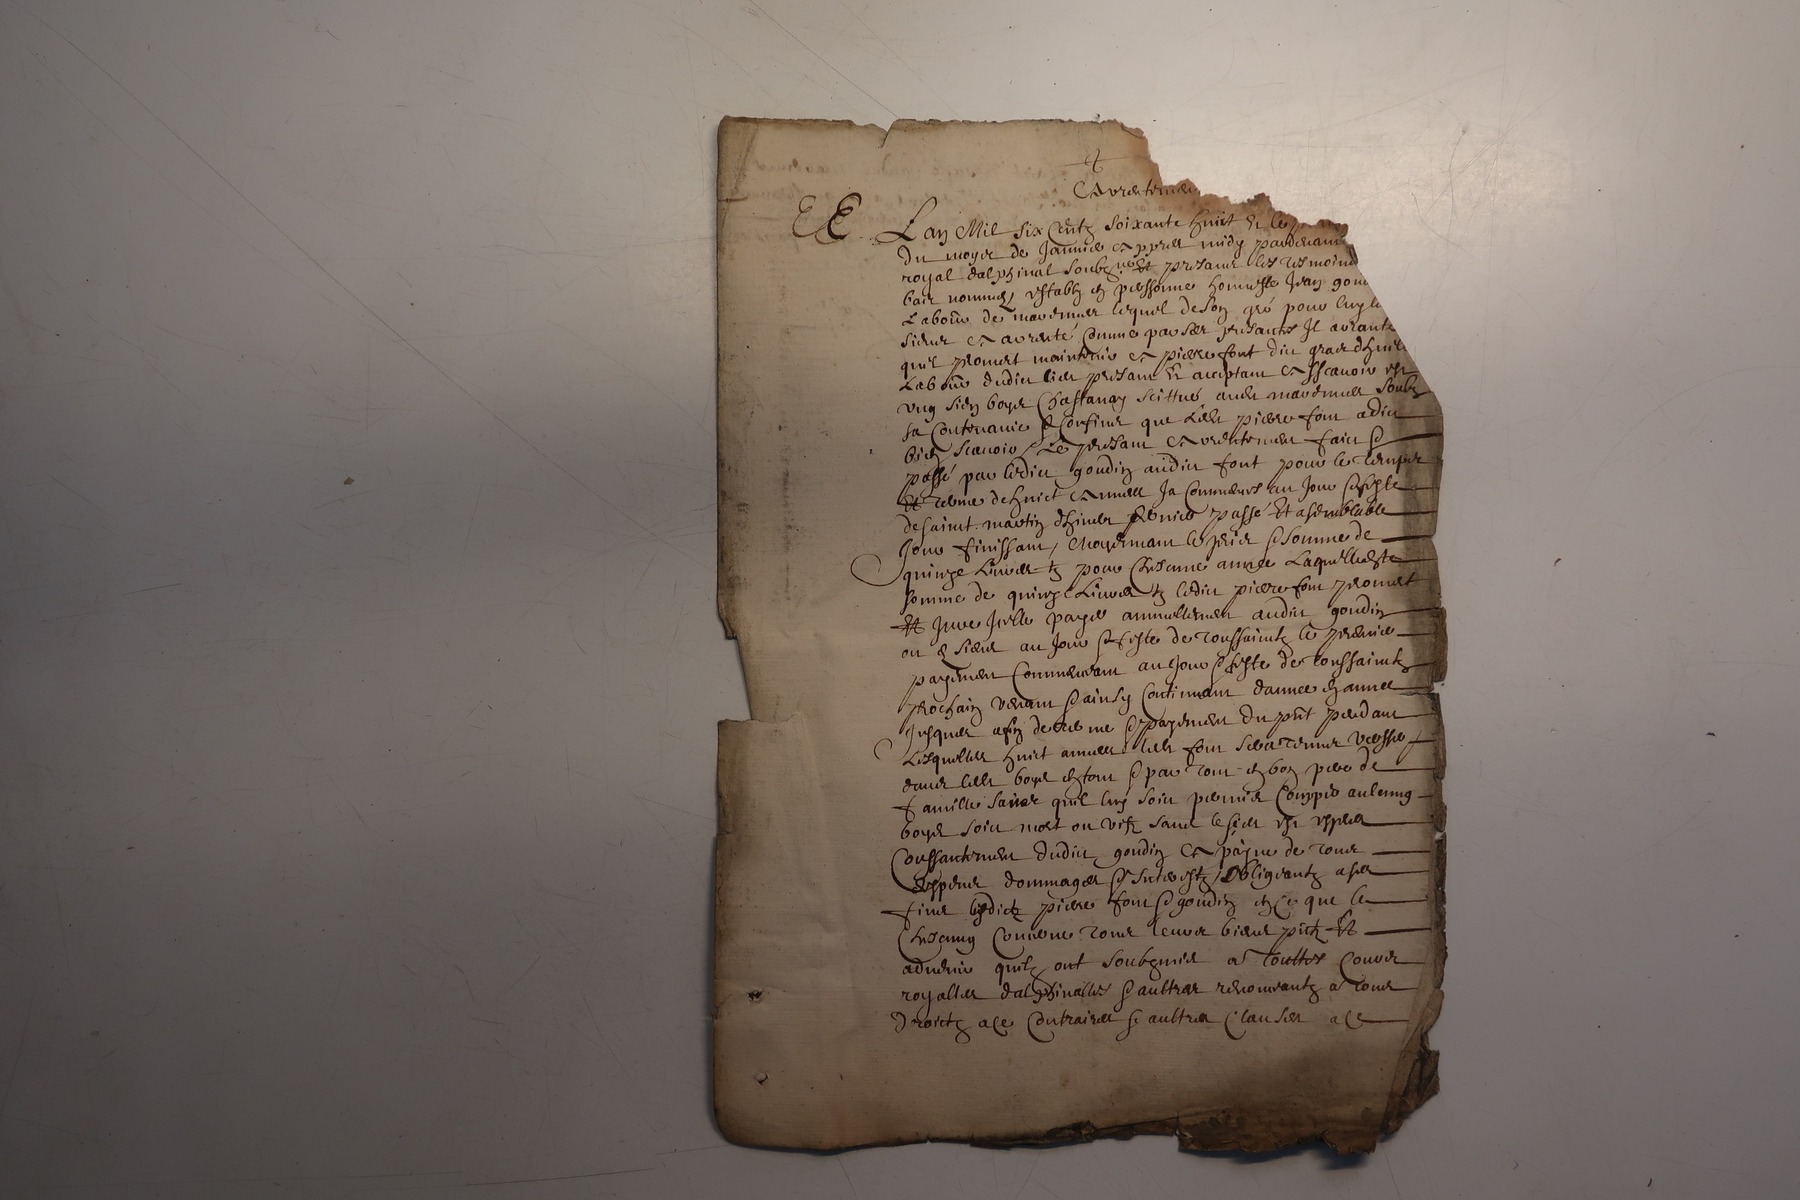 Arrentemen
Lan Mil six Centz soixante huict Et le
Du moys de Janvier Appres midy pardevant
royal dalphinal soubzne Et presant les tesmoins
bas nommes establi en personne honneste Jean goud
Laboure de lequel de son gré pour luy
siens A arrenté Comme par ses presantes Il arrante
quil promet maintenir A pierre font dict
Laboure dudict lieu presant Et aceptant A sscavoir est
ung sien boys Chastanay scittué soubz
sa Contenance & Confins que Ledt pierre font a dict
bien scavoir Le presant Arrentemen faict &
passé par ledict goudin audict font pour le temps
Et terme de huict Annees Ja Commences au Jour & feste
de saint martin dhiver dernier passé Et a semblable
Jour finissant, Moyenant le prix & somme de
quinze Livres tz pour Chescune annee Laquelle
somme de quinze Livres tz ledict pierre font promet
Et Jure Icelle payer annuellemen audict goudin
ou es siens au Jour & feste de toussaintz le premier
payemen Commencant au Jour & feste de toussaintz
prochain venant & ainsy Continuant dannee en annee
Jusques a fin de terme & payemen du pnt pendant
Lesquelles huict annees ledt font sera tenu
dans ledt boys en tout & par tout en bon pere de
famille sans quil luy soict permis Couppe aulcung
boys soict mort ou vifz sans le sceu Et expres
Conssantemen dudict goudin A payne de tous
despens dommages & Interestz Obligeantz a ses
fins lesdictz pierre font & goudin en Ce que le
Chescung Conserne tous leurs biens pntz Et
advenir quilz ont soubzmis a touttes Cours
royalles dalphinalles & aultres renonceantz a tous
Droictz a ce Contraires & aultres Clauses a ce